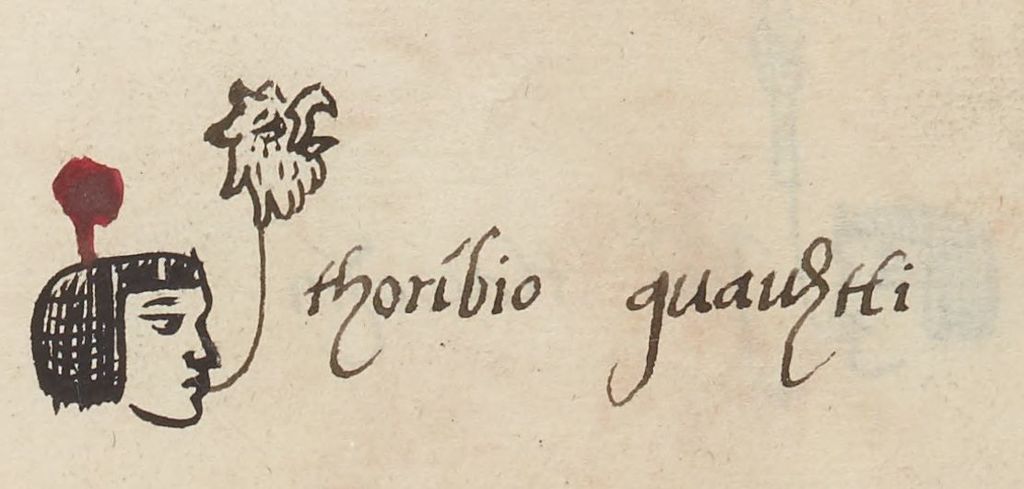 thoribio quauhtli